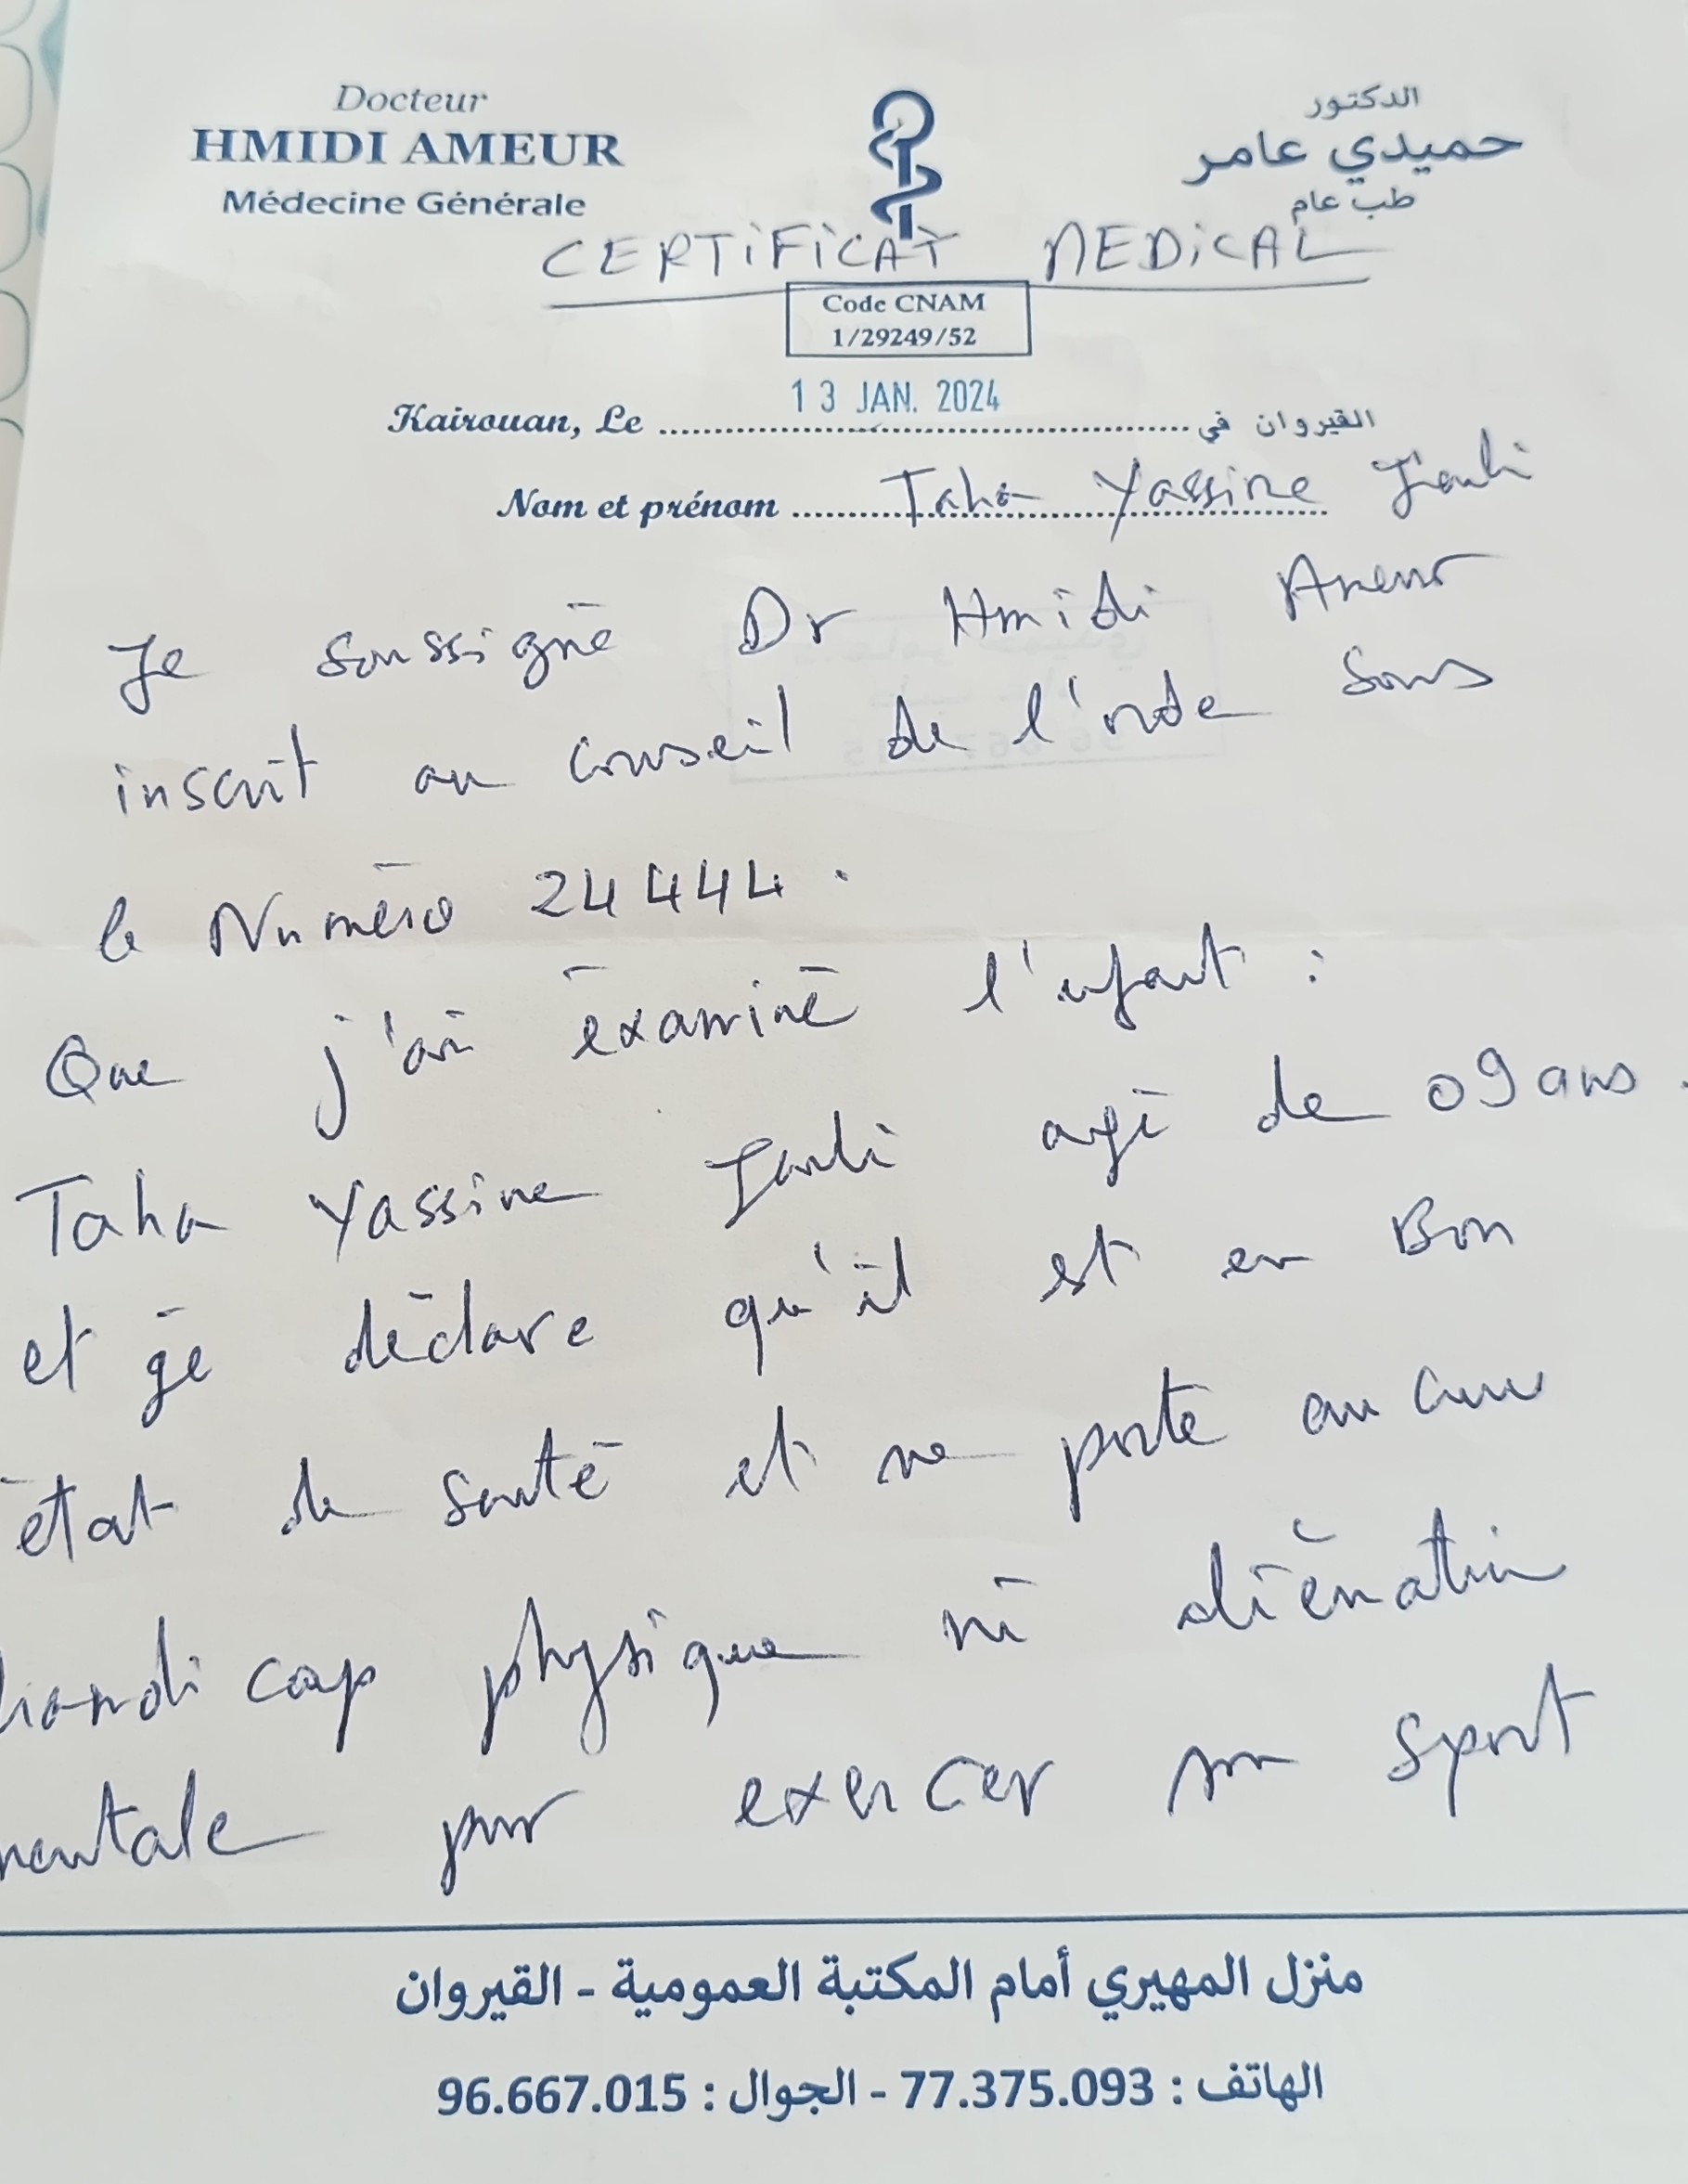 Docteur
HMIDI AMEUR
Médecine Générale
الدكتور
حميدي عامر
طب عام
CERTIFICAT MEDICAL
Code CNAM
1/29249/52
Kairouan, Le 13 JAN. 2024 القيروان في
Nom et prénom Taha Yassine
Je soussigné Dr Hmidi Ameur
inscrit au conseil de l'orde sous
le Numéro 24444.
Que j'ai éxaminé l'enfant :
Taha Yassine agé de 09 ans.
et gé déclare qu'il est en Bon
état de santé et ne porte aucun
handicap physique ni aliénation
mentale pour exercer son sport
منزل المهيري أمام المكتبة العمومية - القيروان
الهاتف : 77.375.093 - الجوال : 96.667.015